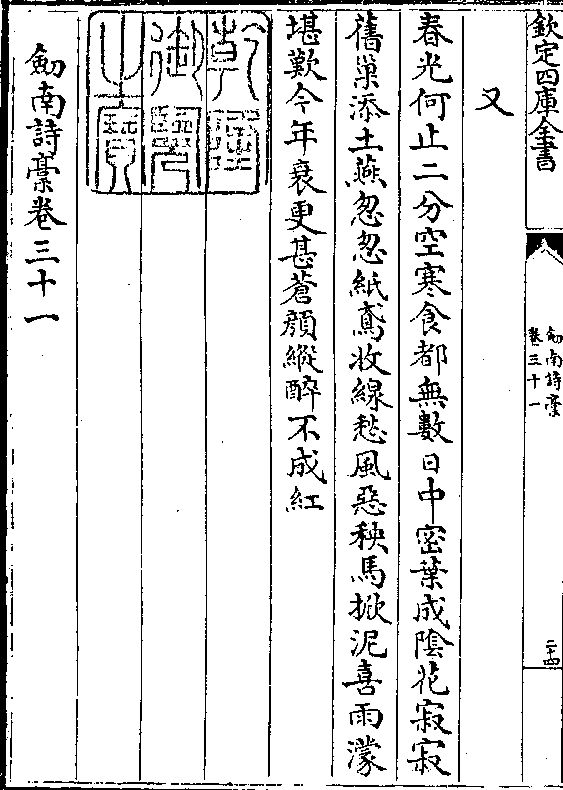 欽定四庫全書
劍南詩稾
卷三十一
二十四
又
春光何止二分空寒食都無數日中密葉成陰花寂寂
舊巢添土燕忽忽紙鳶收線愁風惡秧馬掀泥喜雨濛
堪歎今年衰更甚蒼顔縱醉不成紅
乾隆
御覽
之寶
劍南詩稾卷三十一